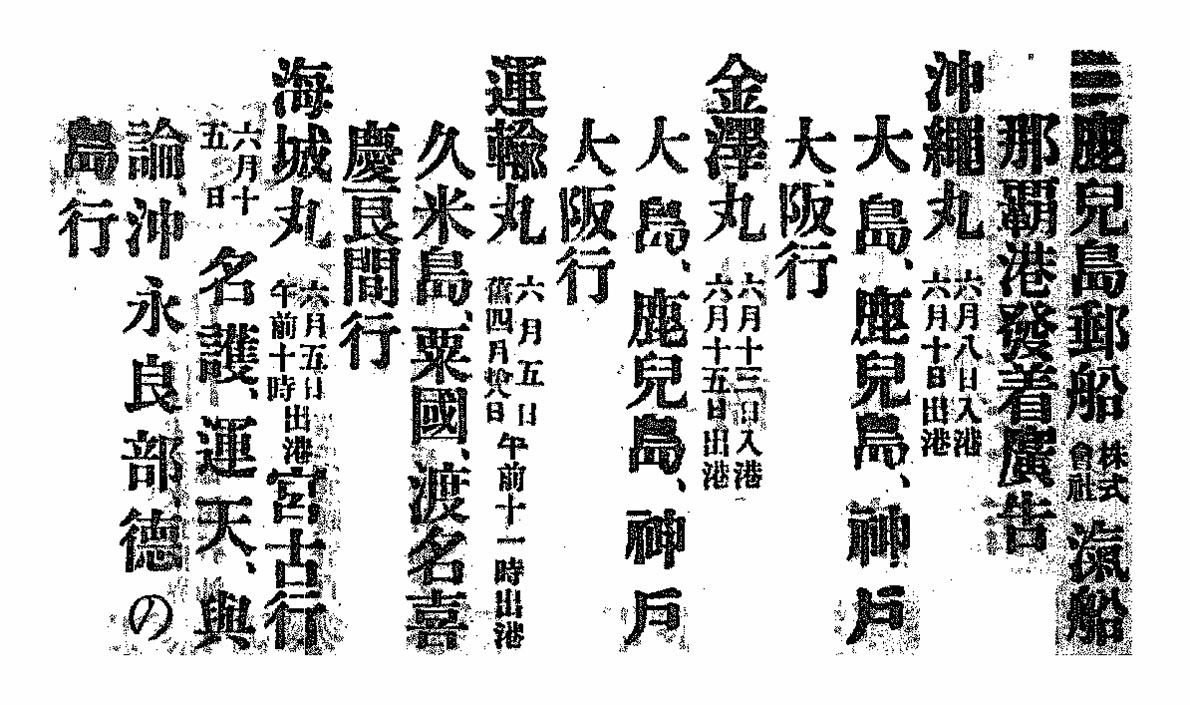 〓鹿兒島郵船株式會社汽船
那覇港發着廣告
沖繩丸 六月八日入港 六月十日出港
大島、鹿兒島、神戸
大阪行
金澤丸 六月十三日入港 六月十五日出港
大島、鹿兒島、神戸
大阪行
運輸丸 六月五日 舊四月拾八日 午前十一時出港
久米島、粟國、渡名喜
慶良間行
海城丸 六月五日午前十時出港 宮古行
六月十五日 名護、運天、與
論、沖永良部德の
島行